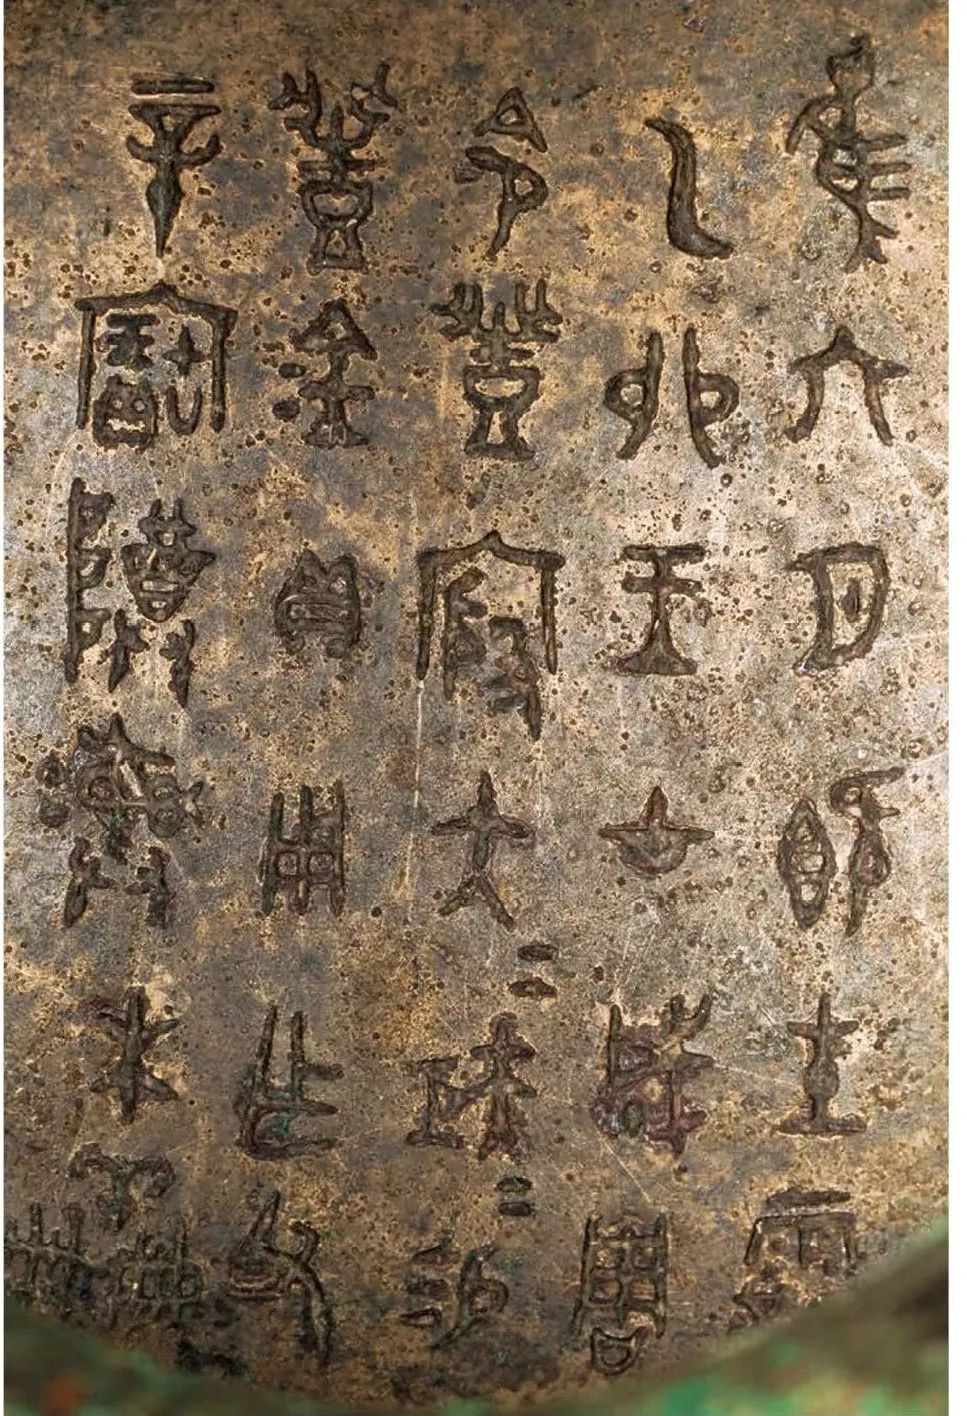 隹六月既生霸
乙卯王才成周
令豐𡪀大=矩=易
豐金貝用乍父
辛寶尊彝木羊冊